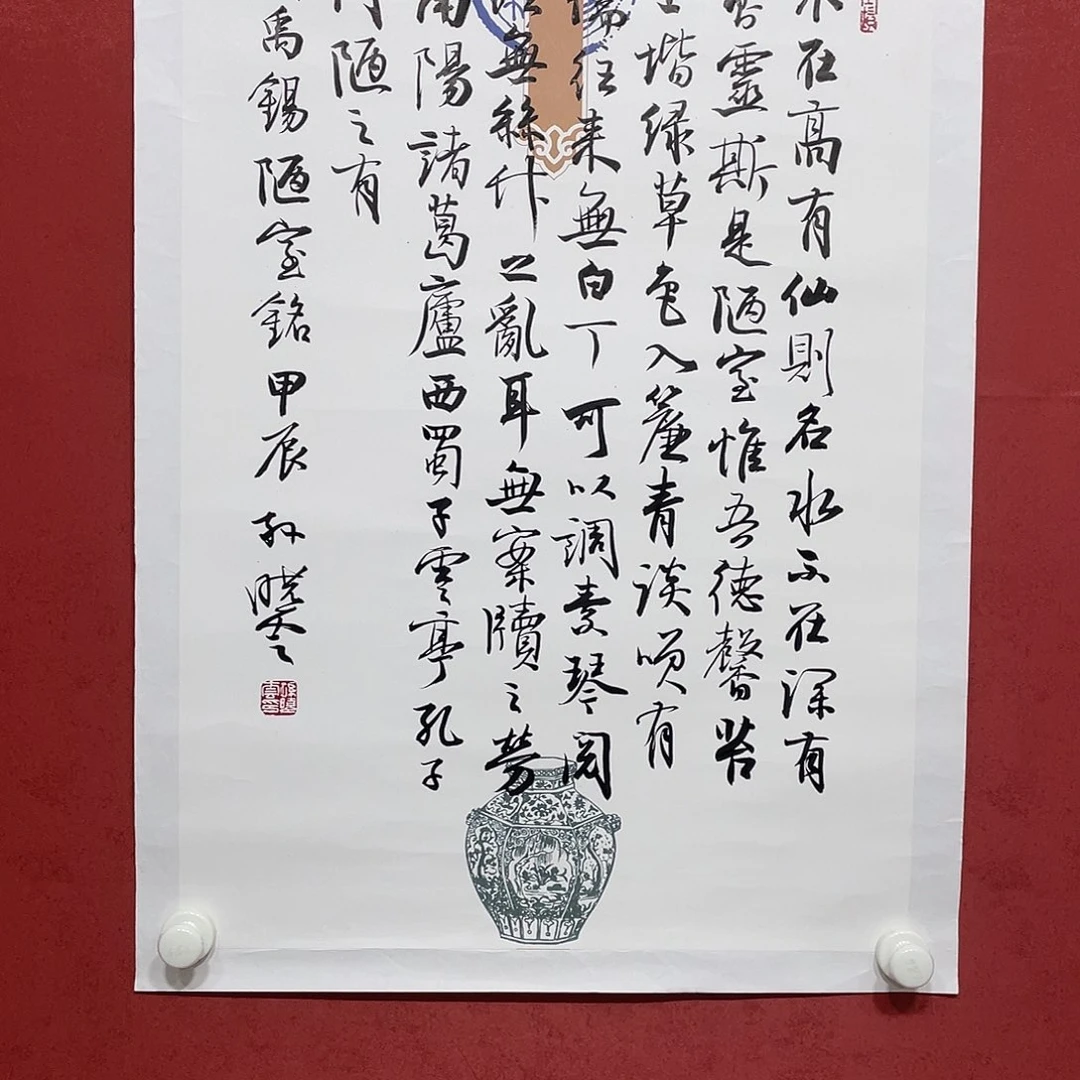 不在高有仙則名水不在深有
靈斯是陋室惟吾德馨苔
堦緑草色入簾青談咲有
往来無白丁可以調素琴閱
無絲竹之亂耳無案牘之勞
南陽諸葛廬西蜀子雲亭孔子
何陋之有
禹錫陋室銘甲辰孙曉云